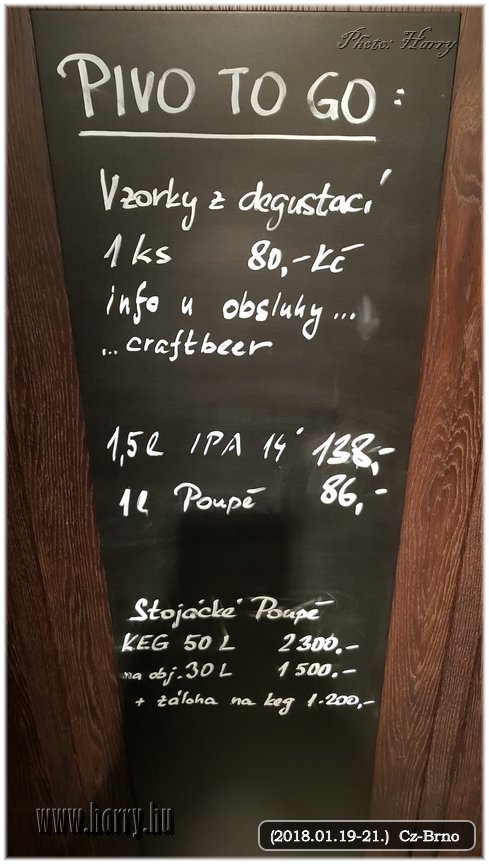 Photo: Harry
PIVO TO GO:
Vzorky z degustací
1 ks 80,- Kč
info u obsluhy...
...craftbeer
1,5l IPA 14° 138,-
1l Poupě 86,-
Stojácké Poupě
KEG 50 L 2300.-
na obj. 30 L 1500.-
+ záloha na keg 1.200,-
www.harry.hu
(2018.01.19-21.) Cz-Brno